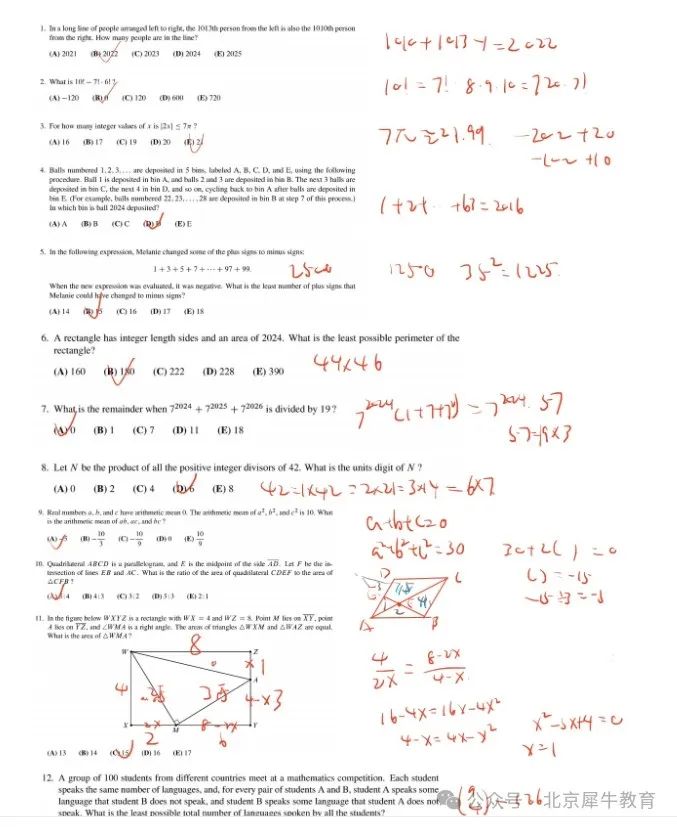 1. In a long line of people arranged left to right, the 1013th person from the left is also the 1010th person
from the right. How many people are in the line?
(A) 2021 (B) 2022 (C) 2023 (D) 2024 (E) 2025
1010+1013-1=2022
2. What is 10! − 7! · 6! ?
(A) −120 (B) 0 (C) 120 (D) 600 (E) 720
10! = 7! · 8·9·10 = 720·7!
3. For how many integer values of x is |2x| ≤ 7π ?
(A) 16 (B) 17 (C) 19 (D) 20 (E) 21
7π ≈ 21.99
4. Balls numbered 1, 2, 3, … are deposited in 5 bins, labeled A, B, C, D, and E, using the following
procedure. Ball 1 is deposited in bin A, and balls 2 and 3 are deposited in bin B. The next 3 balls are
deposited in bin C, the next 4 in bin D, and so on, cycling back to bin A after balls are deposited in
bin E. (For example, balls numbered 22, 23, …, 28 are deposited in bin B at step 7 of this process.)
In which bin is ball 2024 deposited?
(A) A (B) B (C) C (D) D (E) E
1+2+ +63=2016
5. In the following expression, Melanie changed some of the plus signs to minus signs:
1 + 3 + 5 + 7 + ··· + 97 + 99.
2500
1250 35²=1225
When the new expression was evaluated, it was negative. What is the least number of plus signs that
Melanie could have changed to minus signs?
(A) 14 (B) 15 (C) 16 (D) 17 (E) 18
6. A rectangle has integer length sides and an area of 2024. What is the least possible perimeter of the
rectangle?
(A) 160 (B) 180 (C) 222 (D) 228 (E) 390
44×46
7. What is the remainder when 7²⁰²⁴ + 7²⁰²⁵ + 7²⁰²⁶ is divided by 19?
(A) 0 (B) 1 (C) 7 (D) 11 (E) 18
7²⁰²⁴(1+7+7²) = 7²⁰²⁴·57
57=19×3
8. Let N be the product of all the positive integer divisors of 42. What is the units digit of N ?
(A) 0 (B) 2 (C) 4 (D) 6 (E) 8
42=1×42=2×21=3×14=6×7
9. Real numbers a, b, and c have arithmetic mean 0. The arithmetic mean of a², b², and c² is 10. What
is the arithmetic mean of ab, ac, and bc ?
(A) −5 (B) −10/3 (C) −10/9 (D) 0 (E) 10/9
a+b+c=0
a²+b²+c²=30 30+2( )=0
( )=-15
-15÷3=-5
10. Quadrilateral ABCD is a parallelogram, and E is the midpoint of the side AD. Let F be the in-
tersection of lines EB and AC. What is the ratio of the area of quadrilateral CDEF to the area of
△CFB ?
(A) 5:4 (B) 4:3 (C) 3:2 (D) 5:3 (E) 2:1
D C
A B
11. In the figure below WXYZ is a rectangle with WX = 4 and WZ = 8. Point M lies on XY, point
A lies on YZ, and ∠WMA is a right angle. The areas of triangles △WXM and △WAZ are equal.
What is the area of △WMA?
8
W Z
x 1
A
4 2√5 3√5 4-x 3
X 2x M 8-2x Y
2 6
4/2x = 8-2x/4-x
16-4x=16x-4x²
4-x=4x-x² x²-5x+4=0
x=1
(A) 13 (B) 14 (C) 15 (D) 16 (E) 17
12. A group of 100 students from different countries meet at a mathematics competition. Each student
speaks the same number of languages, and, for every pair of students A and B, student A speaks some
language that student B does not speak, and student B speaks some language that student A does not
speak. What is the least possible total number of languages spoken by all the students?
公众号 · 北京犀牛教育